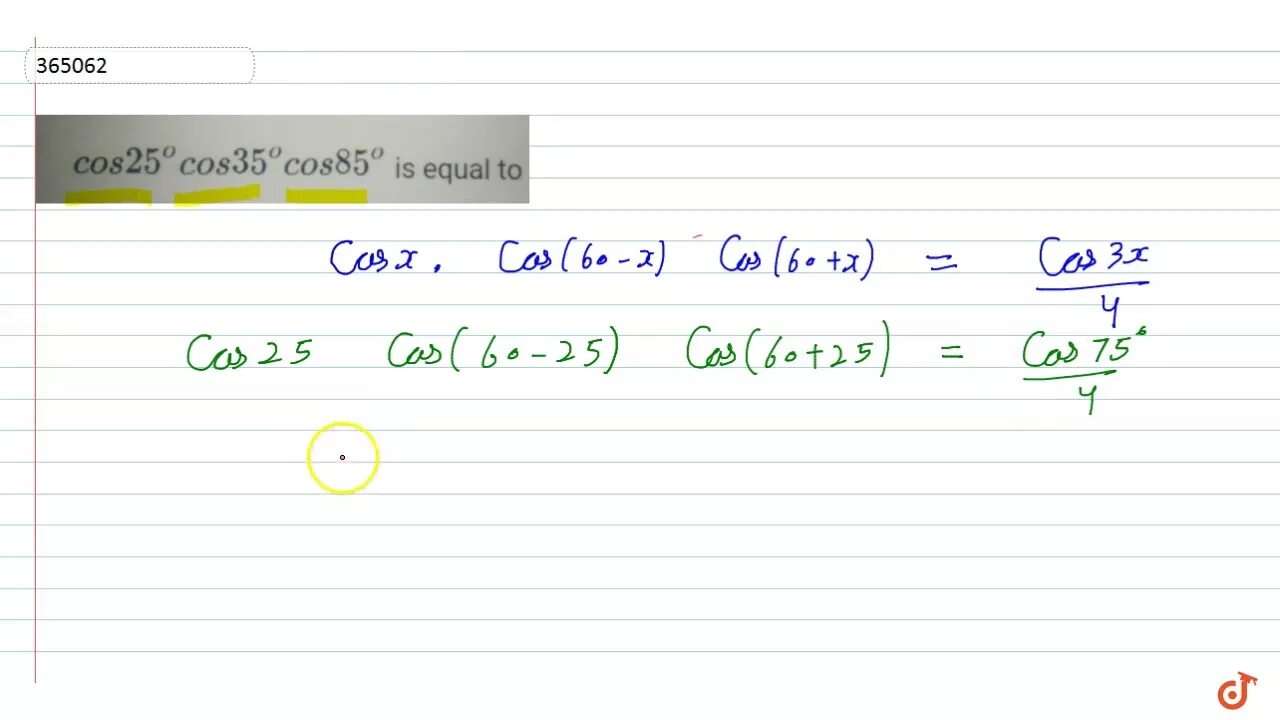 365062
cos25° cos35° cos85° is equal to
Cos x . Cos(60-x) Cos(60+x) = Cos 3x / 4
Cos 25 Cos(60-25) Cos(60+25) = Cos 75° / 4